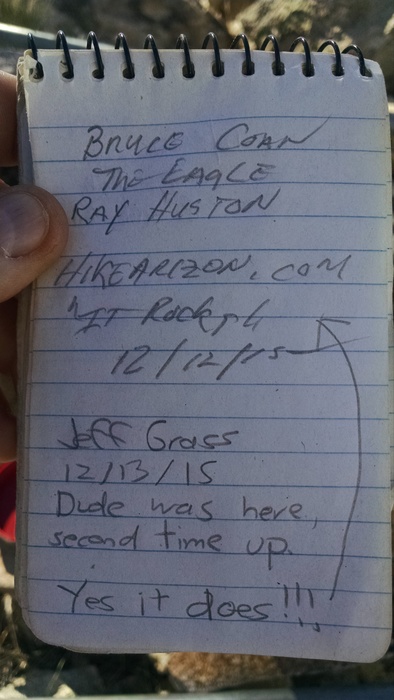 BRUCE COAN
THE EAGLE
RAY HUSTON
HIKEARIZON.COM
"IT Rocks
12/12/15
Jeff Grass
12/13/15
Dude was here,
second time up.
Yes it does!!!